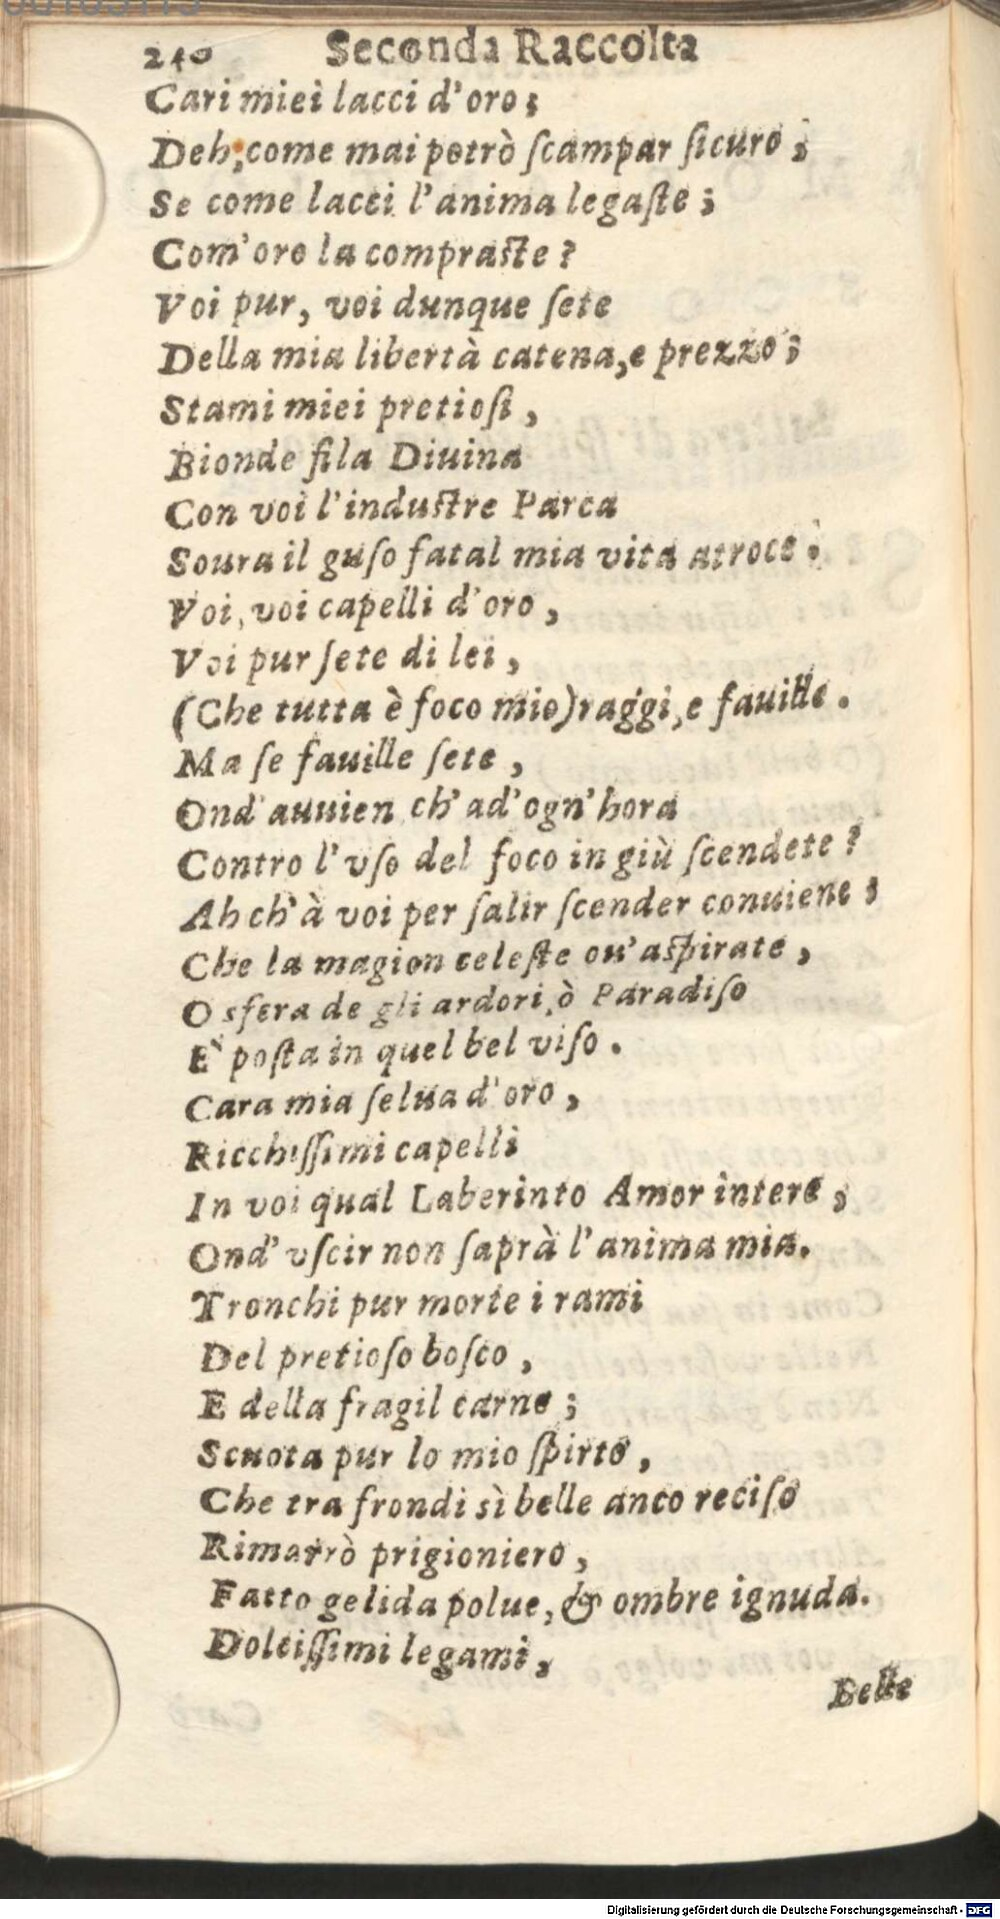 240 Seconda Raccolta
Cari miei lacci d'oro;
Deh, come mai potrò ſcampar ſicuro;
Se come lacci l'anima legaſte;
Com'oro la compraſte?
Voi pur, voi dunque ſete
Della mia libertà catena, e prezzo;
Stami miei pretioſi,
Bionde fila Diuina
Con voi l'induſtre Parca
Soura il guſo fatal mia vita atroce;
Voi, voi capelli d'oro,
Voi pur ſete di lei,
(Che tutta è foco mio) raggi, e fauille.
Ma ſe fauille ſete,
Ond'auuien ch'ad'ogn'hora
Contro l'vſo del foco in giù ſcendete?
Ah ch'à voi per ſalir ſcender conuiene;
Che la magion celeſte ou'aſpirate,
O sfera de gli ardori, ò Paradiſo
E' poſta in quel bel viſo.
Cara mia ſelua d'oro,
Ricchiſſimi capelli
In voi qual Laberinto Amor intere,
Ond'vſcir non ſaprà l'anima mia.
Tronchi pur morte i rami
Del pretioſo boſco,
E della fragil carne;
Scuota pur lo mio ſpirto,
Che tra frondi sì belle anco reciſo
Rimarrò prigioniero,
Fatto gelida polue, & ombre ignuda.
Dolciſſimi legami,
Belle
Digitalisierung gefördert durch die Deutsche Forschungsgemeinschaft - DFG